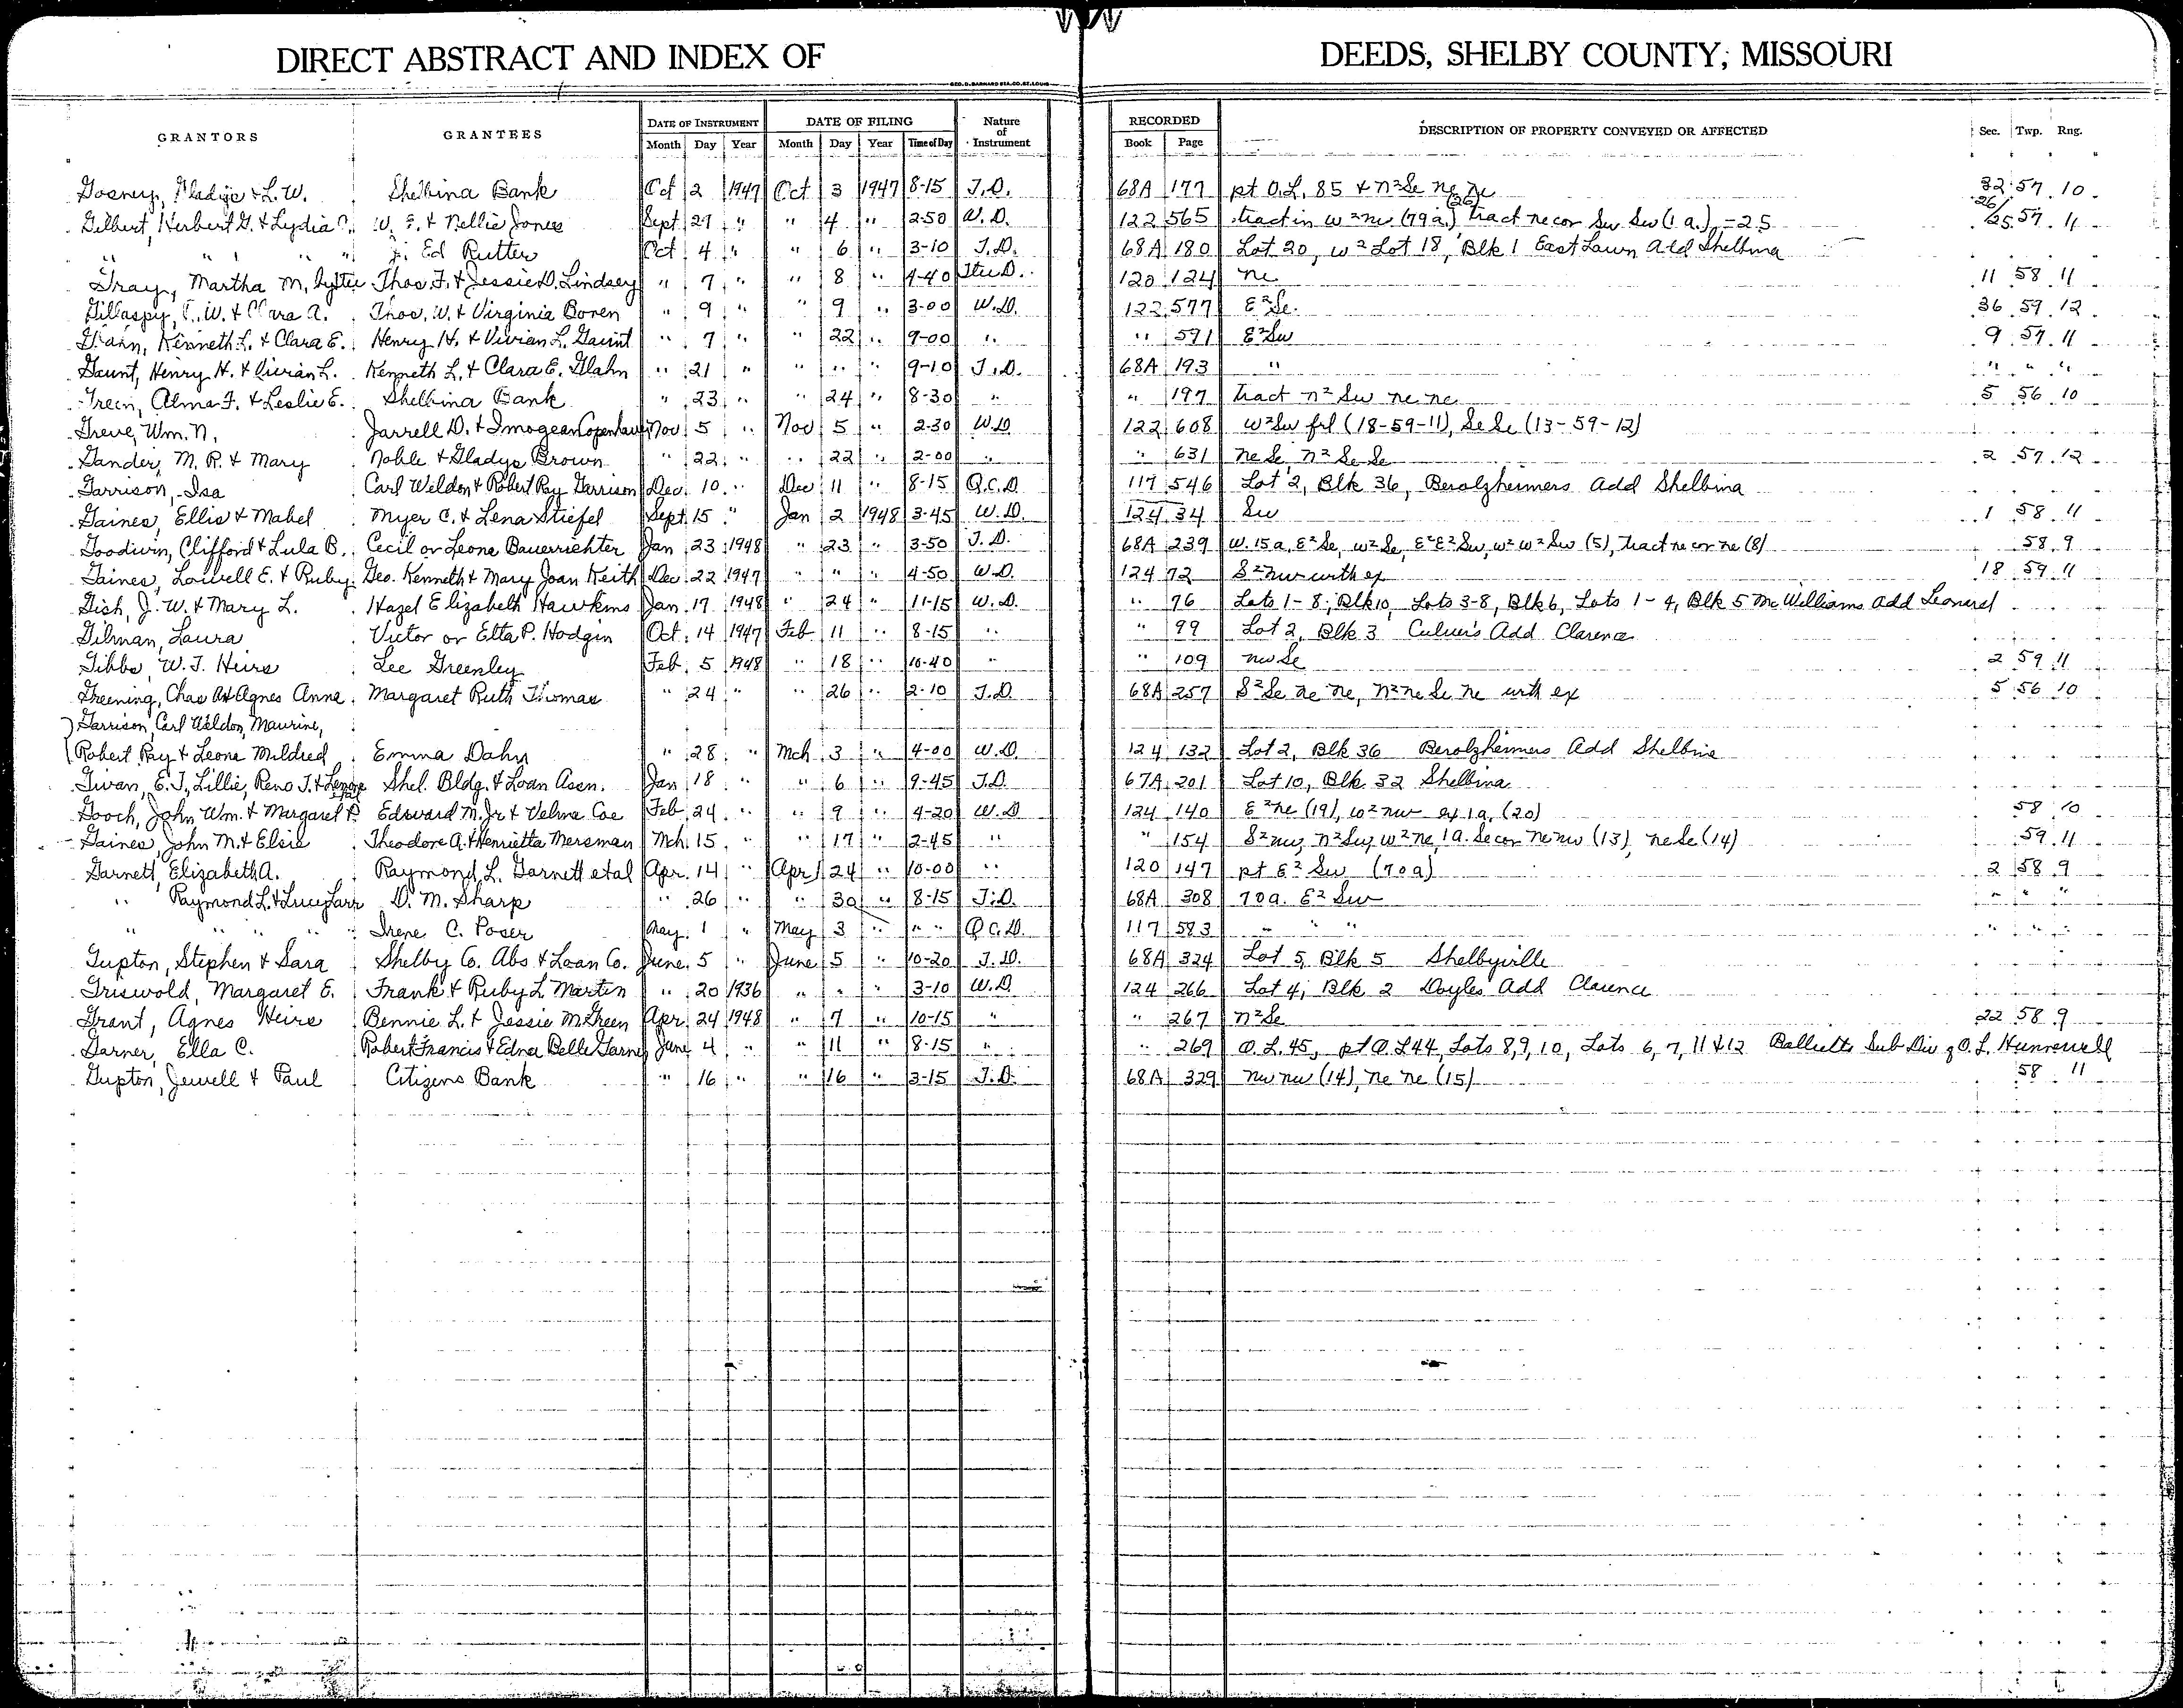 DIRECT ABSTRACT AND INDEX OF DEEDS, SHELBY COUNTY, MISSOURI
GEO. D. BARNARD STA. CO. ST. LOUIS
GRANTORS GRANTEES DATE OF INSTRUMENT DATE OF FILING Nature of Instrument RECORDED DESCRIPTION OF PROPERTY CONVEYED OR AFFECTED Sec. Twp. Rng.
Month Day Year Month Day Year Time of Day Book Page
Gosney, Gladyce & L. W. Shelbina Bank Oct 2 1947 Oct 3 1947 8-15 T.D. 68A 177 pt O.L. 85 & N²Se Ne Ne 32 57 10
Gilbert, Herbert G. & Lydia W. E. & Nellie Jones Sept 27 " " 4 " 2-50 W.D. 122 565 tract in W²Nw (79a.) (26) tract ne cor Sw Sw (1 a.) - 25 26/25 57 11
" " " " J. Ed Rutter Oct 4 " " 6 " 3-10 T.D. 68A 180 Lot 20, W² Lot 18, Blk 1 East Lawn Add Shelbina
Gray, Martha M. by Thos. F. & Jessie D. Lindsey " 7 " " 8 " 4-40 D. 120 124 Ne 11 58 11
Gillaspy, C. W. & Clara A. Thos. W. & Virginia Boren " 9 " " 9 " 3-00 W.D. 122 577 E²Se. 36 59 12
Glahn, Kenneth L. & Clara E. Henry H. & Vivian L. Gaunt " 7 " " 22 " 9-00 " " 591 E²Sw 9 57 11
Gaunt, Henry H. & Vivian L. Kenneth L. & Clara E. Glahn " 21 " " " " 9-10 T.D. 68A 193 " " " "
Green, Alma F. & Leslie E. Shelbina Bank " 23 " " 24 " 8-30 " " 197 tract N² Sw Ne Ne 5 56 10
Greve, Wm. N. Jarrell D. & Imogean Copenhaver Nov 5 " Nov 5 " 2-30 W.D 122 608 W²Sw frl (18-59-11), Se Se (13-59-12)
Gander, M. R. & Mary Noble & Gladys Brown " 22 " " 22 " 2-00 " " 631 Ne Se, N² Se Se 2 57 12
Garrison, Isa Carl Weldon & Robert Ray Garrison Dec. 10 " Dec 11 " 8-15 Q.C.D 117 546 Lot 2, Blk 36, Berolzheimers Add Shelbina
Gaines, Ellis & Mabel Myer C. & Lena Stiefel Sept. 15 " Jan 2 1948 3-45 W.D. 124 34 Sw 1 58 11
Goodwin, Clifford & Lula B. Cecil or Leone Bauerrichter Jan 23 1948 " 23 " 3-50 T.D. 68A 239 W. 15a, E² Se, W² Se, E²E² Sw, W² W² Sw (5), tract ne cor Ne (8) 58 9
Gaines, Lowell E. & Ruby Geo. Kenneth & Mary Joan Keith Dec 22 1947 " " " 4-50 W.D 124 72 S²Nw with ex 18 59 11
Gish, J. W. & Mary L. Hazel Elizabeth Hawkins Jan. 17 1948 " 24 " 11-15 W.D. " 76 Lots 1-8, Blk 10, Lots 3-8, Blk 6, Lots 1-4, Blk 5 McWilliams Add Leonard
Gilman, Laura Victor or Etta P. Hodgin Oct. 14 1947 Feb 11 " 8-15 " " 99 Lot 2, Blk 3 Culver's Add Clarence
Gibbs, W. T. Heirs Lee Greenley Feb. 5 1948 " 18 " 10-40 " " 109 Nw Se 2 59 11
Greening, Chas A & Agnes Anne Margaret Ruth Thomas " 24 " " 26 " 2-10 T.D. 68A 257 S²Se Ne Ne, N² Ne Se Ne with ex 5 56 10
Garrison, Carl Weldon, Maurine,
Robert Ray & Leona Mildred Emma Dahn " 28 " Mch 3 " 4-00 W.D. 124 132 Lot 2, Blk 36 Berolzheimers Add Shelbina
Givan, E. J., Lillie, Reno J. & Lenore Shel. Bldg. & Loan Assn. Jan 18 " " 6 " 9-45 T.D 67A 201 Lot 10, Blk 32 Shelbina
Gooch, John Wm. & Margaret P. Edward M. Jr & Velma Coe Feb. 24 " " 9 " 4-20 W.D 124 140 E²Ne (19), W² Nw ex 1a. (20) 58 10
Gaines, John M. & Elsie Theodore A. & Henrietta Mersman Mch. 15 " " 17 " 2-45 " " 154 S²Nw, N²Sw, W² Ne, 1a. Se cor Ne Nw (13), Ne Se (14) 59 11
Garnett, Elizabeth A. Raymond L. Garnett etal Apr. 14 " Apr 24 " 10-00 " 120 147 pt E² Sw (70a) 2 58 9
" Raymond L. & Lucy Carr D. M. Sharp " 26 " " 30 " 8-15 T.D. 68A 308 70a. E² Sw " " "
" " " " Irene C. Poser May 1 " May 3 " " " Q.C.D. 117 583 " " " " " "
Gupton, Stephen & Sara Shelby Co. Abs & Loan Co. June 5 " June 5 " 10-20 T.D. 68A 324 Lot 5, Blk 5 Shelbyville
Griswold, Margaret E. Frank & Ruby L. Martin " 20 1936 " " " 3-10 W.D 124 266 Lot 4, Blk 2 Doyles Add Clarence
Grant, Agnes Heirs Bennie L. & Jessie M. Green Apr 24 1948 " 7 " 10-15 " " 267 N²Se 22 58 9
Garner, Ella C. Robert Francis & Edna Belle Garner June 4 " " 11 " 8-15 " " 269 O.L. 45, pt O.L 44, Lots 8, 9, 10, Lots 6, 7, 11 & 12 Sub Div of O.L. Hunnewell
Gupton, Jewell & Paul Citizens Bank " 16 " " 16 " 3-15 T.D. 68A 329 Nw Nw (14), Ne Ne (15) 58 11